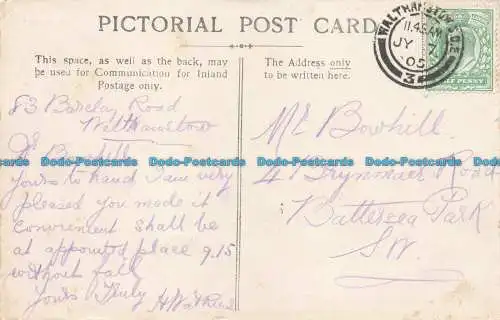 PICTORIAL POST CARD
This space, as well as the back, may
be used for Communication for Inland
Postage only.
The Address only
to be written here.
WALTHAMSTOW S.O.E.
11.45AM
JY
05
3
HALF PENNY
83 Barclay Road
Walthamstow
Bowhill
Yours to hand I am very
pleased you made it
convenient shall be
at appointed place 9.15
without fail
Yours Truly H Watkins
Mr Bowhill
4 Brynmaer Road
Battersea Park
SW.
Dodo-Postcards Dodo-Postcards Dodo-Postcards Dodo-Postcards Dodo-Postcards